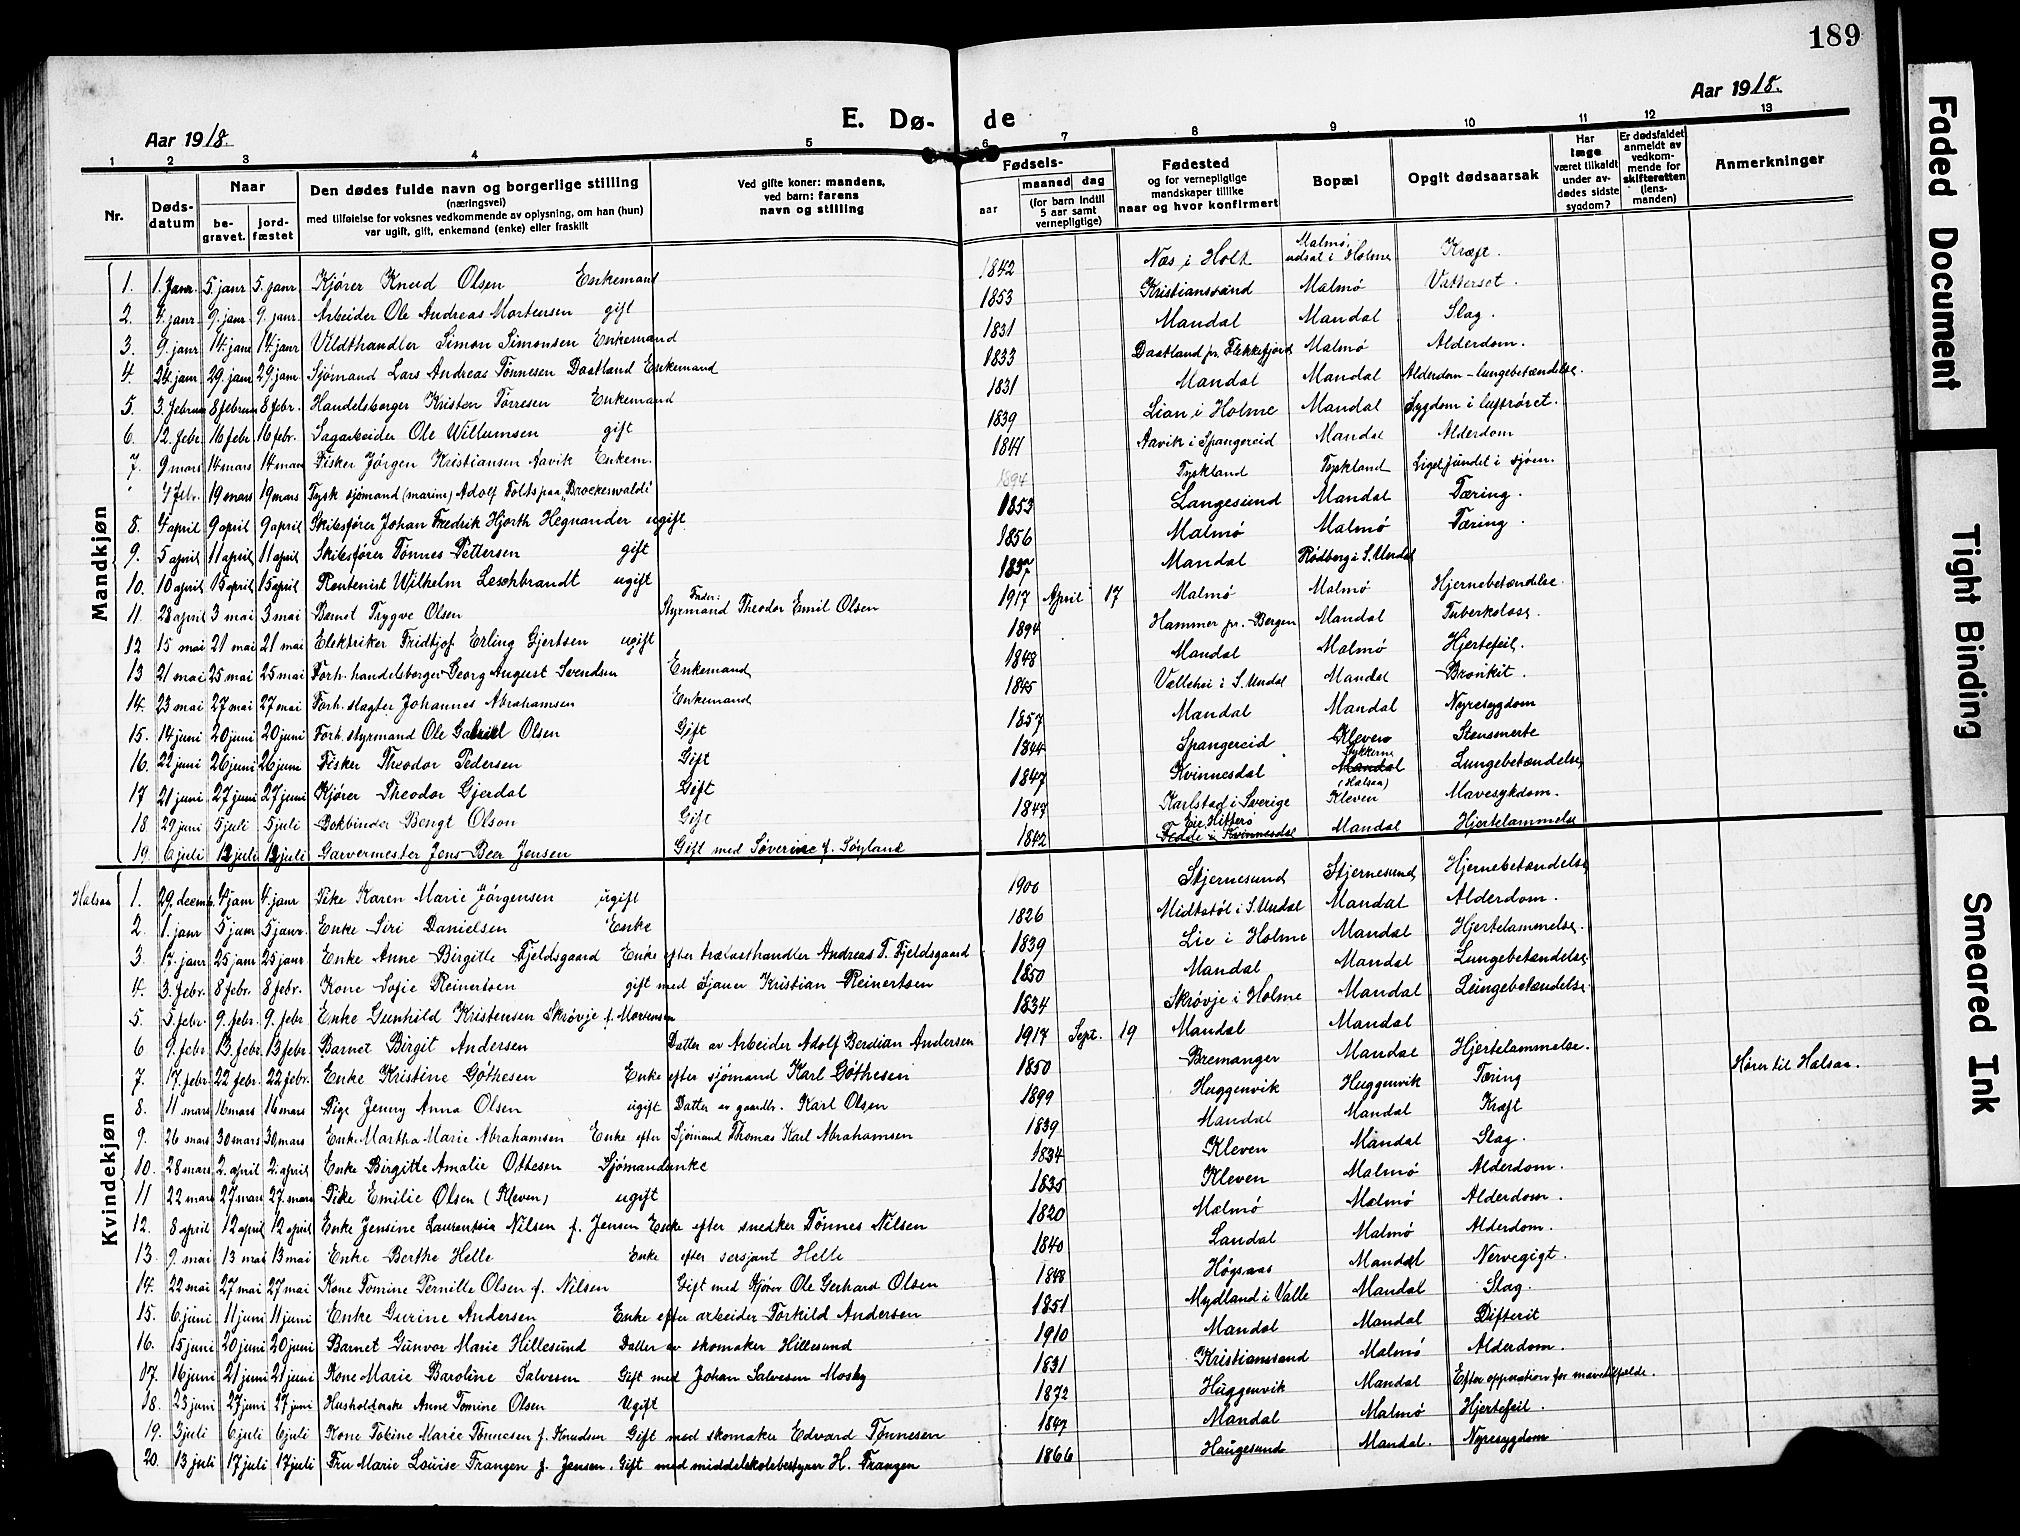 189
Aar 1918.
E. Dø-
de
Aar 1918.
1 2 3 4 5 6 7 8 9 10 11 12 13
Nr.
Døds-
datum
Naar
be-
gravet.
jord-
fæstet
Den dødes fulde navn og borgerlige stilling
(næringsvei)
med tilføielse for voksnes vedkommende av oplysning, om han (hun)
var ugift, gift, enkemand (enke) eller fraskilt
Ved gifte koner: mandens,
ved barn: farens
navn og stilling
Fødsels-
aar
maaned
dag
(for barn indtil
5 aar samt
vernepligtige)
Fødested
og for vernepligtige
mandskaper tillike
naar og hvor konfirmert
Bopæl
Opgit dødsaarsak
Har
læge
været tilkaldt
under av-
dødes sidste
sygdom?
Er dødsfaldet
anmeldt av
vedkom-
mende for
skifteretten
(lens-
manden)
Anmerkninger
Mandkjøn
1. 1. Janr. 5. janr 5. janr Kjører Knud Olsen Enkemand 1842 Næs i Holt Malmø, udsal i Holme Kræft.
2. 4. janr. 9. janr 9. janr. Arbeider Ole Andreas Mortensen gift 1853 Kristianssand Malmø Vattersot.
3. 9. janr 14. janr 14. janr Vildthandler Simon Simonsen Enkemand 1831 Mandal Mandal Slag.
4. 24. janr 29. janr 29. janr Sjømand Lars Andreas Tønnesen Daatland Enkemand 1833 Daatland pr. Flekkefjord Malmø Alderdom.
5. 3. februar 8 februar 8 febr. Handelsborger Kristen Tørresen Enkemand 1831 Mandal Mandal Alderdom - lungebetændelse.
6. 12. febr. 16 febr. 16 febr. Sagarbeider Ole Willumsen gift 1839 Lian i Holme Mandal Sygdom i luftrøret.
7. 9 mars 14 mars 14 mars Fisker Jørgen Kristiansen Aavik Enkem. 1841 Aavik i Spangereid Mandal Alderdom
7 febr. 19 mars 19 mars Tysk sjømand (marine) Adolf Folts paa "Brockenwalde" 1894 Tyskland Tyskland Liget fundet i sjøen.
8. 4 april 9 april 9 april Skibsfører Johan Fredrik Hjorth Hegnander ugift. 1853 Langesund Mandal Tæring.
9. 5 april 11 april 11 april Skibsfører Tønnes Pettersen gift 1856 Malmø Malmø Tæring.
10. 10 april 15 april 15 april Rentenist Wilhelm Leschbrandt ugift 1837 Mandal Rødberg i S. Undal
11. 28 april 3 mai 3 mai Barnet Trygve Olsen Fader: Styrmand Theodor Emil Olsen 1917 April 17 Malmø Malmø Hjernebetændelse.
12 15 mai 21 mai 21 mai Elektriker Fridtjof Erling Gjertsen ugift 1894 Hammer pr. Bergen Mandal Tuberkolose
13 21 mai 25 mai 25 mai Forh. handelsborger Georg August Svendsen Enkemand 1848 Mandal Malmø Hjertefeil.
14. 23 mai 27 mai 27 mai Forh. slagter Johannes Abrahamsen Enkemand 1845 Vallehei i S. Undal Mandal Bronkit.
15. 14 juni 20 juni 20 juni Forh. styrmand Ole Gabriel Olsen Gift 1857 Mandal Mandal Nyresygdom
16. 22 juni 26 juni 26 juni Fisker Theodor Pedersen Gift 1844 Spangereid Kleven Stensmerte
17 21 juni 27 juni 27 juni Kjører Theodor Gjerdal Gift 1847 Kvinnesdal Mandal (Halsaa) Lungebetændelse
18 29 juni 5 juli 5 juli Bokbinder Bengt Olson Gift 1847 Karlstad i Sverige Kleven Mavesykdom.
19. 6 juli 12 juli 12 juli Garvermester Jens Beer Jensen Gift med Søverine f. Søyland 1842 Eie Hitterø Fedde i Kvinnesdal Mandal Hjertelammelse
Kvindekjøn
Halsaa 1. 29. decem. 4. janr 4. janr Pike Karen Marie Jørgensen ugift 1900 Stjernesund Stjernesund Hjernebetændelse
2. 1. janr 5 janr 5 janr. Enke Siri Danielsen Enke 1826 Midtstøl i S. Undal Mandal Alderdom.
3. 17. janr 25 janr 25 janr Enke Anne Birgitte Fjeldsgaard Enke efter trælasthandler Andreas T. Fjeldsgaard 1839 Lie i Holme Mandal Hjertelammelse.
4. 3. febr 8 febr. 8 febr. Kone Sofie Reinertsen gift med Sjauer Kristian Reinertsen 1850 Mandal Mandal Lungebetændelse
5. 5 febr. 9. febr. 9. febr Enke Gunhild Kristensen Skrøvje f. Mortensen 1834 Skrøvje i Holme Mandal Lungebetændelse.
6 9. febr 13. febr. 13 febr. Barnet Birgit Andersen Datter av Arbeider Adolf Berdian Andersen 1917 Sept. 19 Mandal Mandal
7. 17. febr 22 febr. 22 febr. Enke Kristine Gøthesen Enke efter sjømand Karl Gøthesen 1850 Bremanger Mandal Hjertelammelse.
8. 11 mars 16 mars 16 mars Pige Jenny Anna Olsen ugift Datter av gaardbr. Karl Olsen 1899 Huggenvik Huggenvik Tæring Hører til Halsaa.
9. 26 mars 30 mars 30. mars Enke Martha Marie Abrahamsen Enke efter Sjømand Thomas Karl Abrahamsen 1839 Mandal Mandal Kræft
10. 28 mars 2. april 2. april Enke Birgitte Amalie Ottesen Sjømandsenke 1834 Kleven Mandal Slag.
11 22 mars 27 mars 27. mars Pike Emilie Olsen (Kleven) ugift 1835 Kleven Malmø Alderdom.
12. 8 april 12 april 12 april Enke Jensine Laurentsia Nilsen f. Jensen Enke efter snedker Tønnes Nilsen 1820 Malmø Malmø Alderdom.
13. 9 mai 13 mai 13 mai Enke Berthe Helle Enke efter sersjant Helle 1840 Landal Malmø Alderdom.
14. 22 mai 27 mai 27 mai Kone Tomine Pernille Olsen f. Nilsen Gift med Kjører Ole Gerhard Olsen 1848 Høgsaas Mandal Nervegigt.
15. 6 juni 11 juni 11 juni Enke Gurine Andersen Enke efter arbeider Torkild Andersen 1851 Mydland i Valle Mandal Slag.
16. 15 juni 20 juni 20 juni Barnet Gunvor Marie Hillesund Datter av skomaker Hillesund 1910 Mandal Mandal Difterit
17. 16 juni 21 juni 21 juni Kone Marie Baroline Salvesen Gift med Johan Salvesen Mosby 1831 Kristianssand Malmø Alderdom.
18. 23 juni 27 juni 27 juni Husholderske Anne Tomine Olsen Ugift 1872 Huggenvik Mandal Efter opperation for mavetilfælde.
19. 3 juli 6 juli 6 juli Kone Tobine Marie Tønnesen f. Knudsen Gift med skomaker Edvard Tønnesen 1847 Mandal Malmø Hjertefeil.
20. 13 juli 17 juli 17 juli Fru Marie Louise Frangen f. Jensen. Gift med middelskolebestyrer H. Frangen 1866 Haugesund Mandal. Nyresygdom
Faded Document
Tight Binding
Smeared Ink